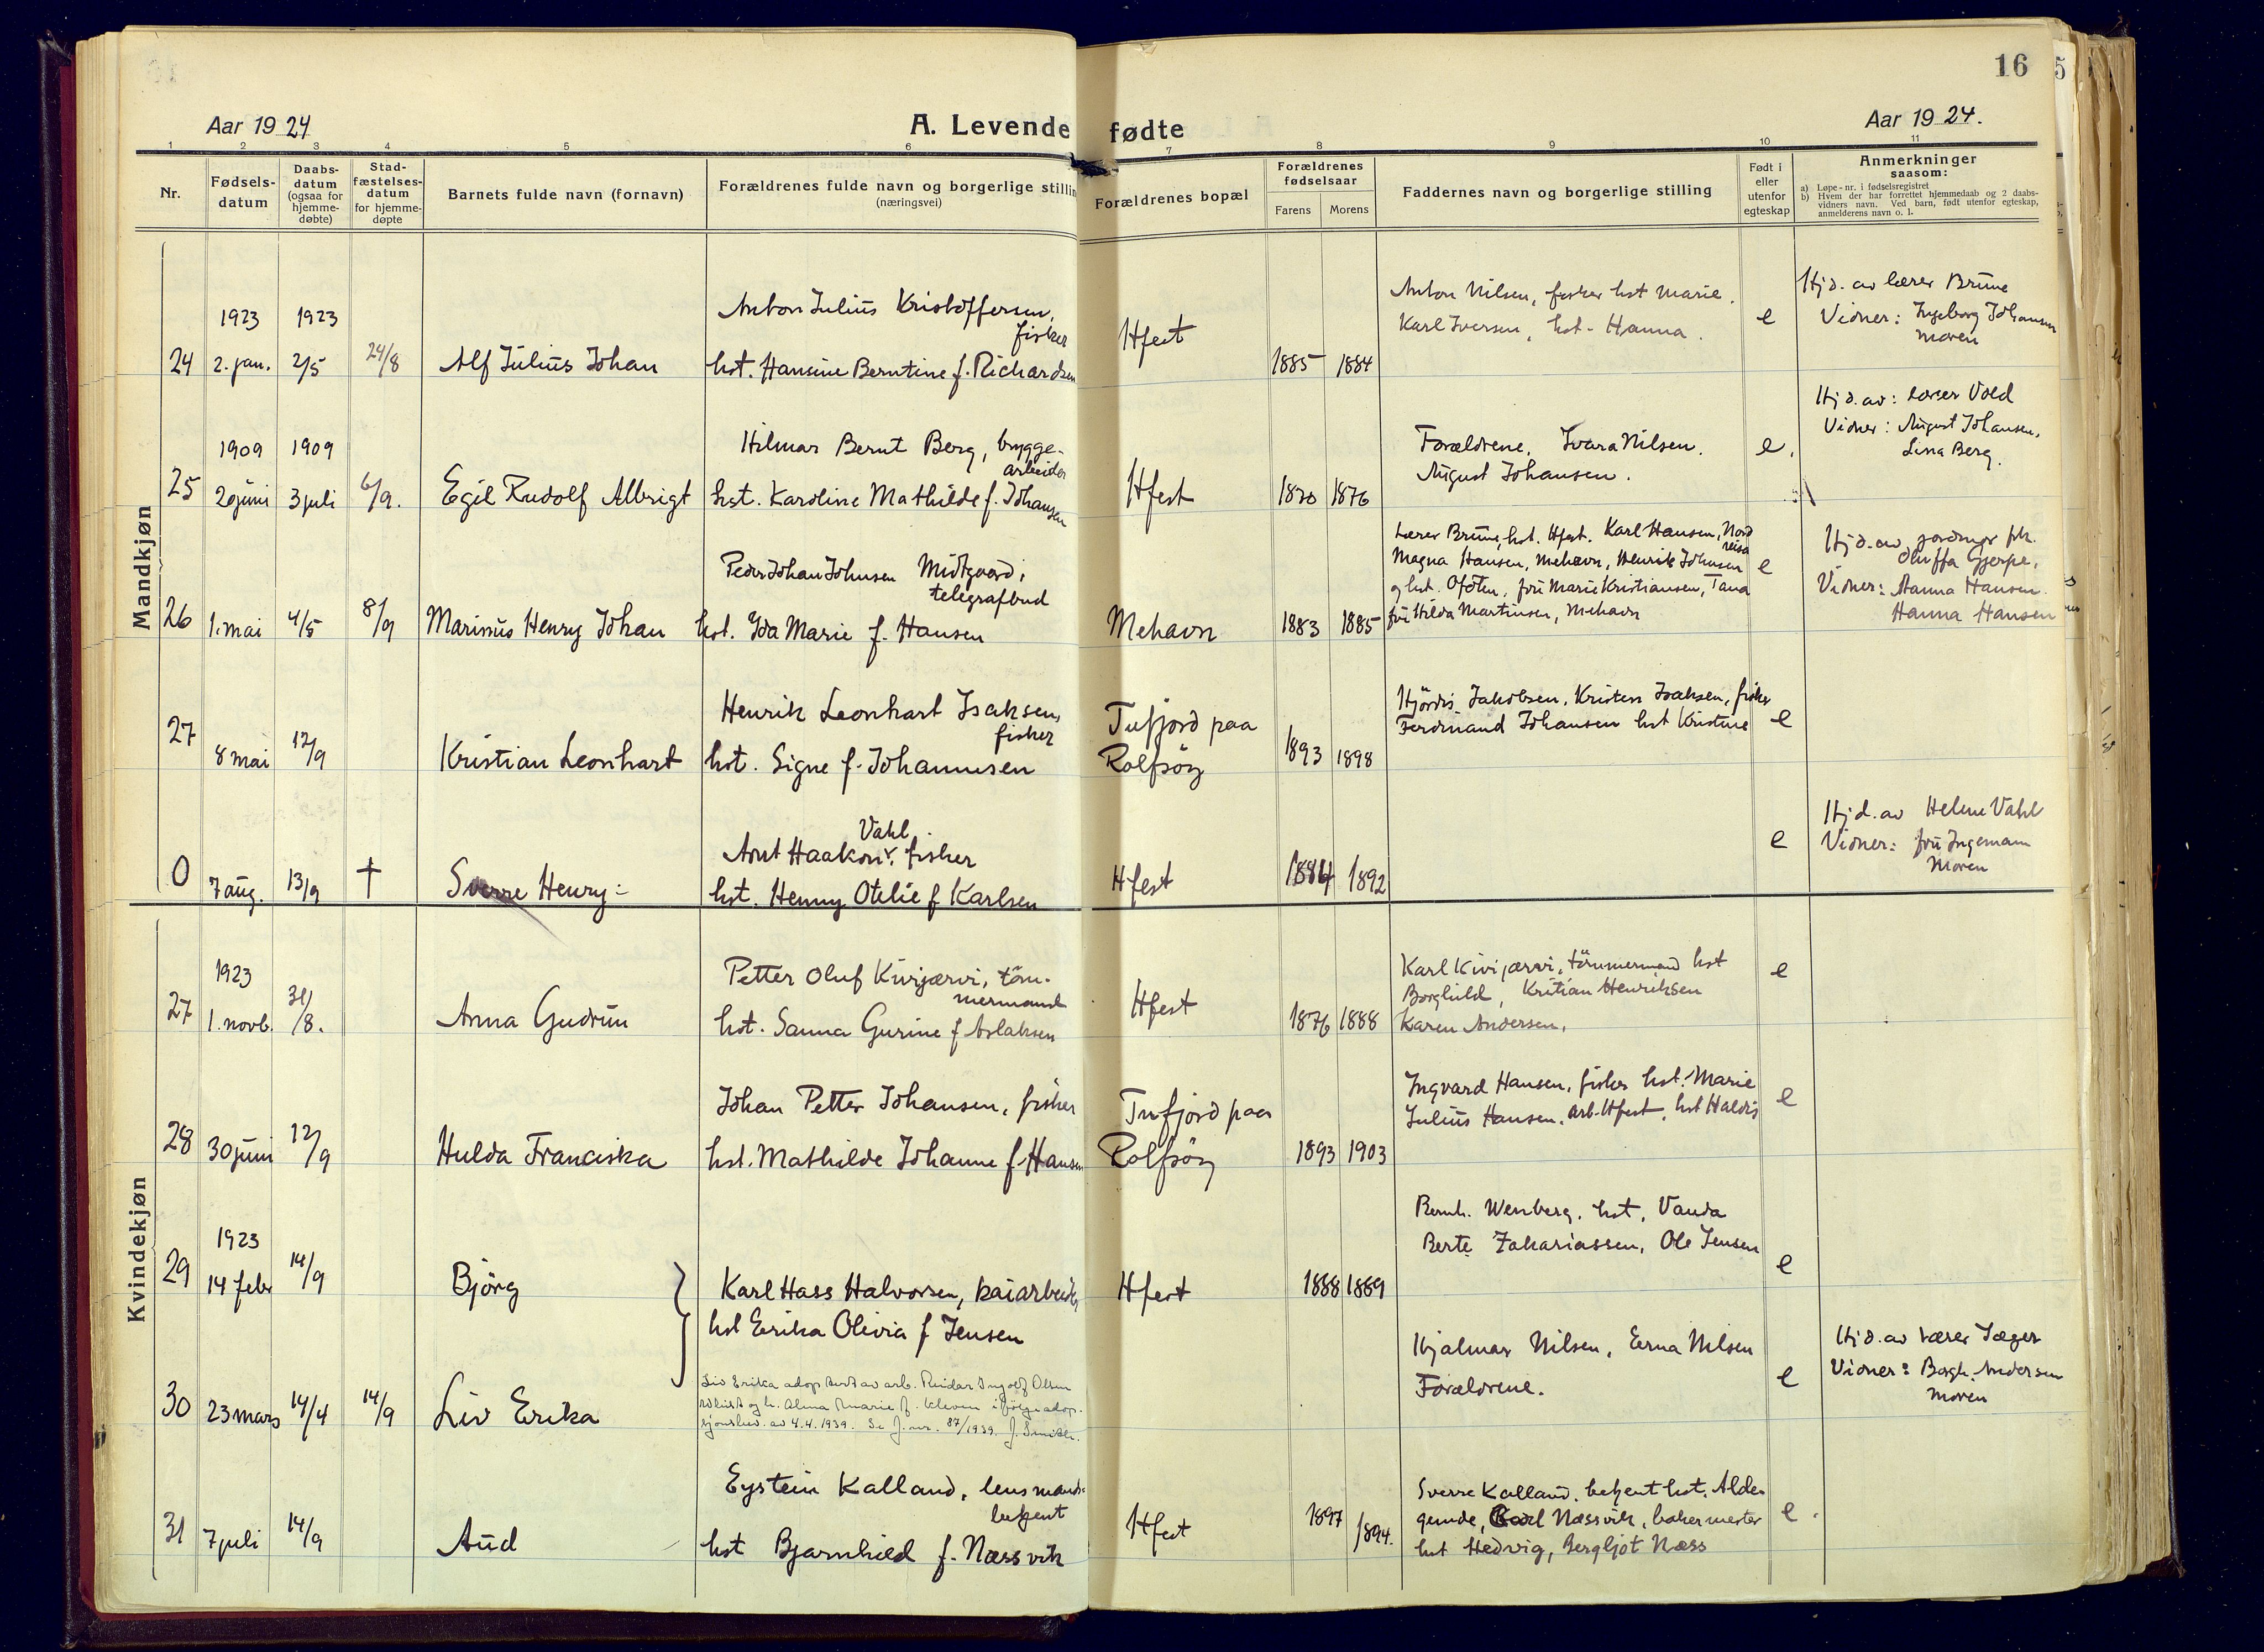 16
Aar 1924
A. Levende fødte
Aar 1924.
1 2 3 4 5 6 7 8 9 10 11
Nr.
Fødsels-
datum
Daabs-
datum
(ogsaa for
hjemme-
døbte)
Stad-
fæstelses-
datum
for hjemme-
døpte
Barnets fulde navn (fornavn)
Forældrenes fulde navn og borgerlige stillin
(næringsvei)
Forældrenes bopæl
Forældrenes
fødselsaar
Farens Morens
Faddernes navn og borgerlige stilling
Født i
eller
utenfor
egteskap
Anmerkninger
saasom:
a) Løpe-nr. i fødselsregistret
b) Hvem der har forrettet hjemmedaab og 2 daabs-
vidners navn. Ved barn, født utenfor egteskap,
anmelderens navn o. l.
Mandkjøn
24 1923 2. jan. 1923 2/5 24/8 Alf Julius Johan
Anton Julius Kristoffersen,
fisker
hst. Hansine Berntine f. Richardsen
Hfest 1885 1884
Anton Nilsen, fisker hst Marie.
Karl Iversen, hst. Hanna.
e
Hjd. av lærer Brune
Vidner: Ingeborg Johansen
moren
25 1909 20 juni 1909 3 juli 6/9. Egil Rudolf Albrigt
Hilmar Bernt Berg, brygge-
arbeider
hst. Karoline Mathilde f. Johansen
Hfest 1870 1876
Forældrene, Ivara Nilsen.
August Johansen.
e.
Hjd. av: lærer Vold
Vidner: August Johansen,
Lina Berg.
26 1. mai 4/5 8/9 Marinus Henry Johan
Peder Johan Johnsen Midtgaard,
telegrafbud
hst. Ida Marie f. Hansen
Mehavn 1883 1885
Lærer Brune, hst. Hfest. Karl Hansen, Nord
reisa
Magna Hansen, Mehavn, Henrik Johnsen
og hst. Ofoten, fru Marie Kristiansen, Tana
fru Hilda Martinsen, Mehavn
e
Hjd. av jordmor frk.
Oluffa Gjerpe,
Vidner: Nanna Hansen.
Hanna Hansen
27 8 mai 12/9 Kristian Leonhart
Henrik Leonhart Isaksen,
fisker
hst. Signe f. Johannesen
Tufjord paa
Rolfsöy
1893 1898
Hjördis Jakobsen, Kristen Isaksen, fisker
Ferdinand Johansen hst Kristine
e
0 7 aug. 13/9 † Sverre Henry
Vahl
Arnt Haakon fisker
hst. Henny Otelie f Karlsen
Hfest 1884 1892
e
Hjd. av Helene Vahl
Vidner: fru Ingemann
Moren
Kvindekjøn
27 1923 1. novb. 31/8. Anna Gudrun
Petter Oluf Kivijærvi, töm-
mermand
hst. Sanna Gurine f Aslaksen
Hfest 1876 1888
Karl Kivijærvi, tömmermand hst
Borghild, Kristian Henriksen
Karen Andersen.
e
28 30 juni 12/9 Hulda Franciska
Johan Petter Johansen, fisker
hst. Mathilde Johanne f. Hansen
Tufjord paa
Rolfsöy
1893 1903
Ingvard Hansen, fisker hst. Marie
Julius Hansen, arb. Hfest, hst Haldis
e
29 1923 14 febr 14/9 Björg
Karl Hass Halvorsen, kaiarbeider
hst Erika Olivia f Jensen
Hfest 1888 1889
Bernh. Wenberg, hst. Vanda
Berte Zakariassen, Ole Jensen
e
30 23 mars 14/4 14/9 Liv Erika
Liv Erika adoptert av arb. Reidar Ingolf Olsen
og h. Alma Marie f. Kleven ifølge adop-
sjonsbev. av 4.4.1939. Se J.nr. 87/1939.
Hjalmar Nilsen, Erna Nilsen
Forældrene.
e
Hjd. av lærer Jæger
Vidner: Borgh. Andersen
moren
31 7 juli 14/9 Aud
Eystein Kalland, lensmands-
betjent
hst Bjarnhild f. Næssvik
Hfest 1897 1894.
Sverre Kalland, betjent hst. Alde-
gunde, Karl Næssvik, bakermester
hst Hedvig, Bergljot Næss
e.